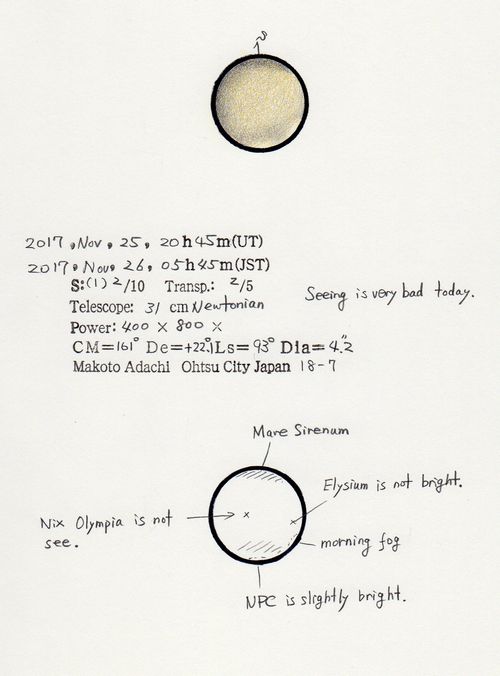 S
2017, Nov, 25, 20h45m(UT)
2017, Nov, 26, 05h45m(JST)
S:(1)2/10 Transp.: 2/5
Seeing is very bad today.
Telescope: 31 cm Newtonian
Power: 400 × 800 ×
CM=161° De=+22.1° Ls=93° Dia=4.″2
Makoto Adachi Ohtsu City Japan 18-7
Mare Sirenum
Elysium is not bright.
Nix Olympia is not
see.
morning fog
NPC is slightly bright.